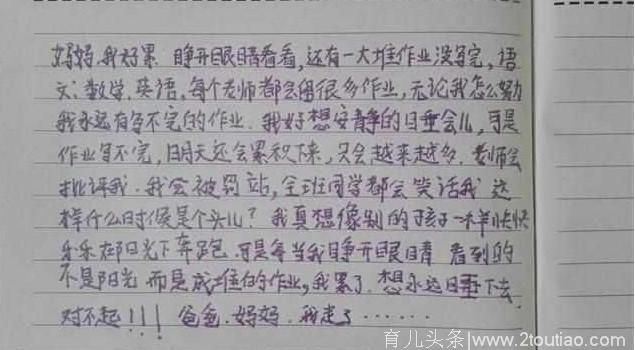 妈妈,我好累 睁开眼睛看看,还有一大堆作业没写完,语
文、数学,英语,每个老师都会留很多作业,无论我怎么努
我永远有写不完的作业.我好想安静的睡会儿,可是
作业写不完,明天还会累积下来,只会越来越多.老师会
批评我.我会被罚站,全班同学都会笑话我 这
样什么时候是个头儿?我真想像别的孩子一样快快
乐乐在阳光下奔跑.可是每当我睁开眼睛 看到的
不是阳光 而是成堆的作业,我累了.想永远睡下去.
对不起!!!爸爸.妈妈.我走了……
育儿头条/www.2toutiao.com